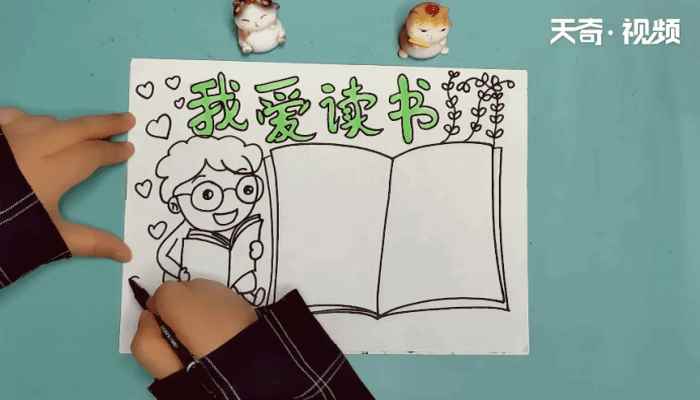 天奇·视频
我爱读书